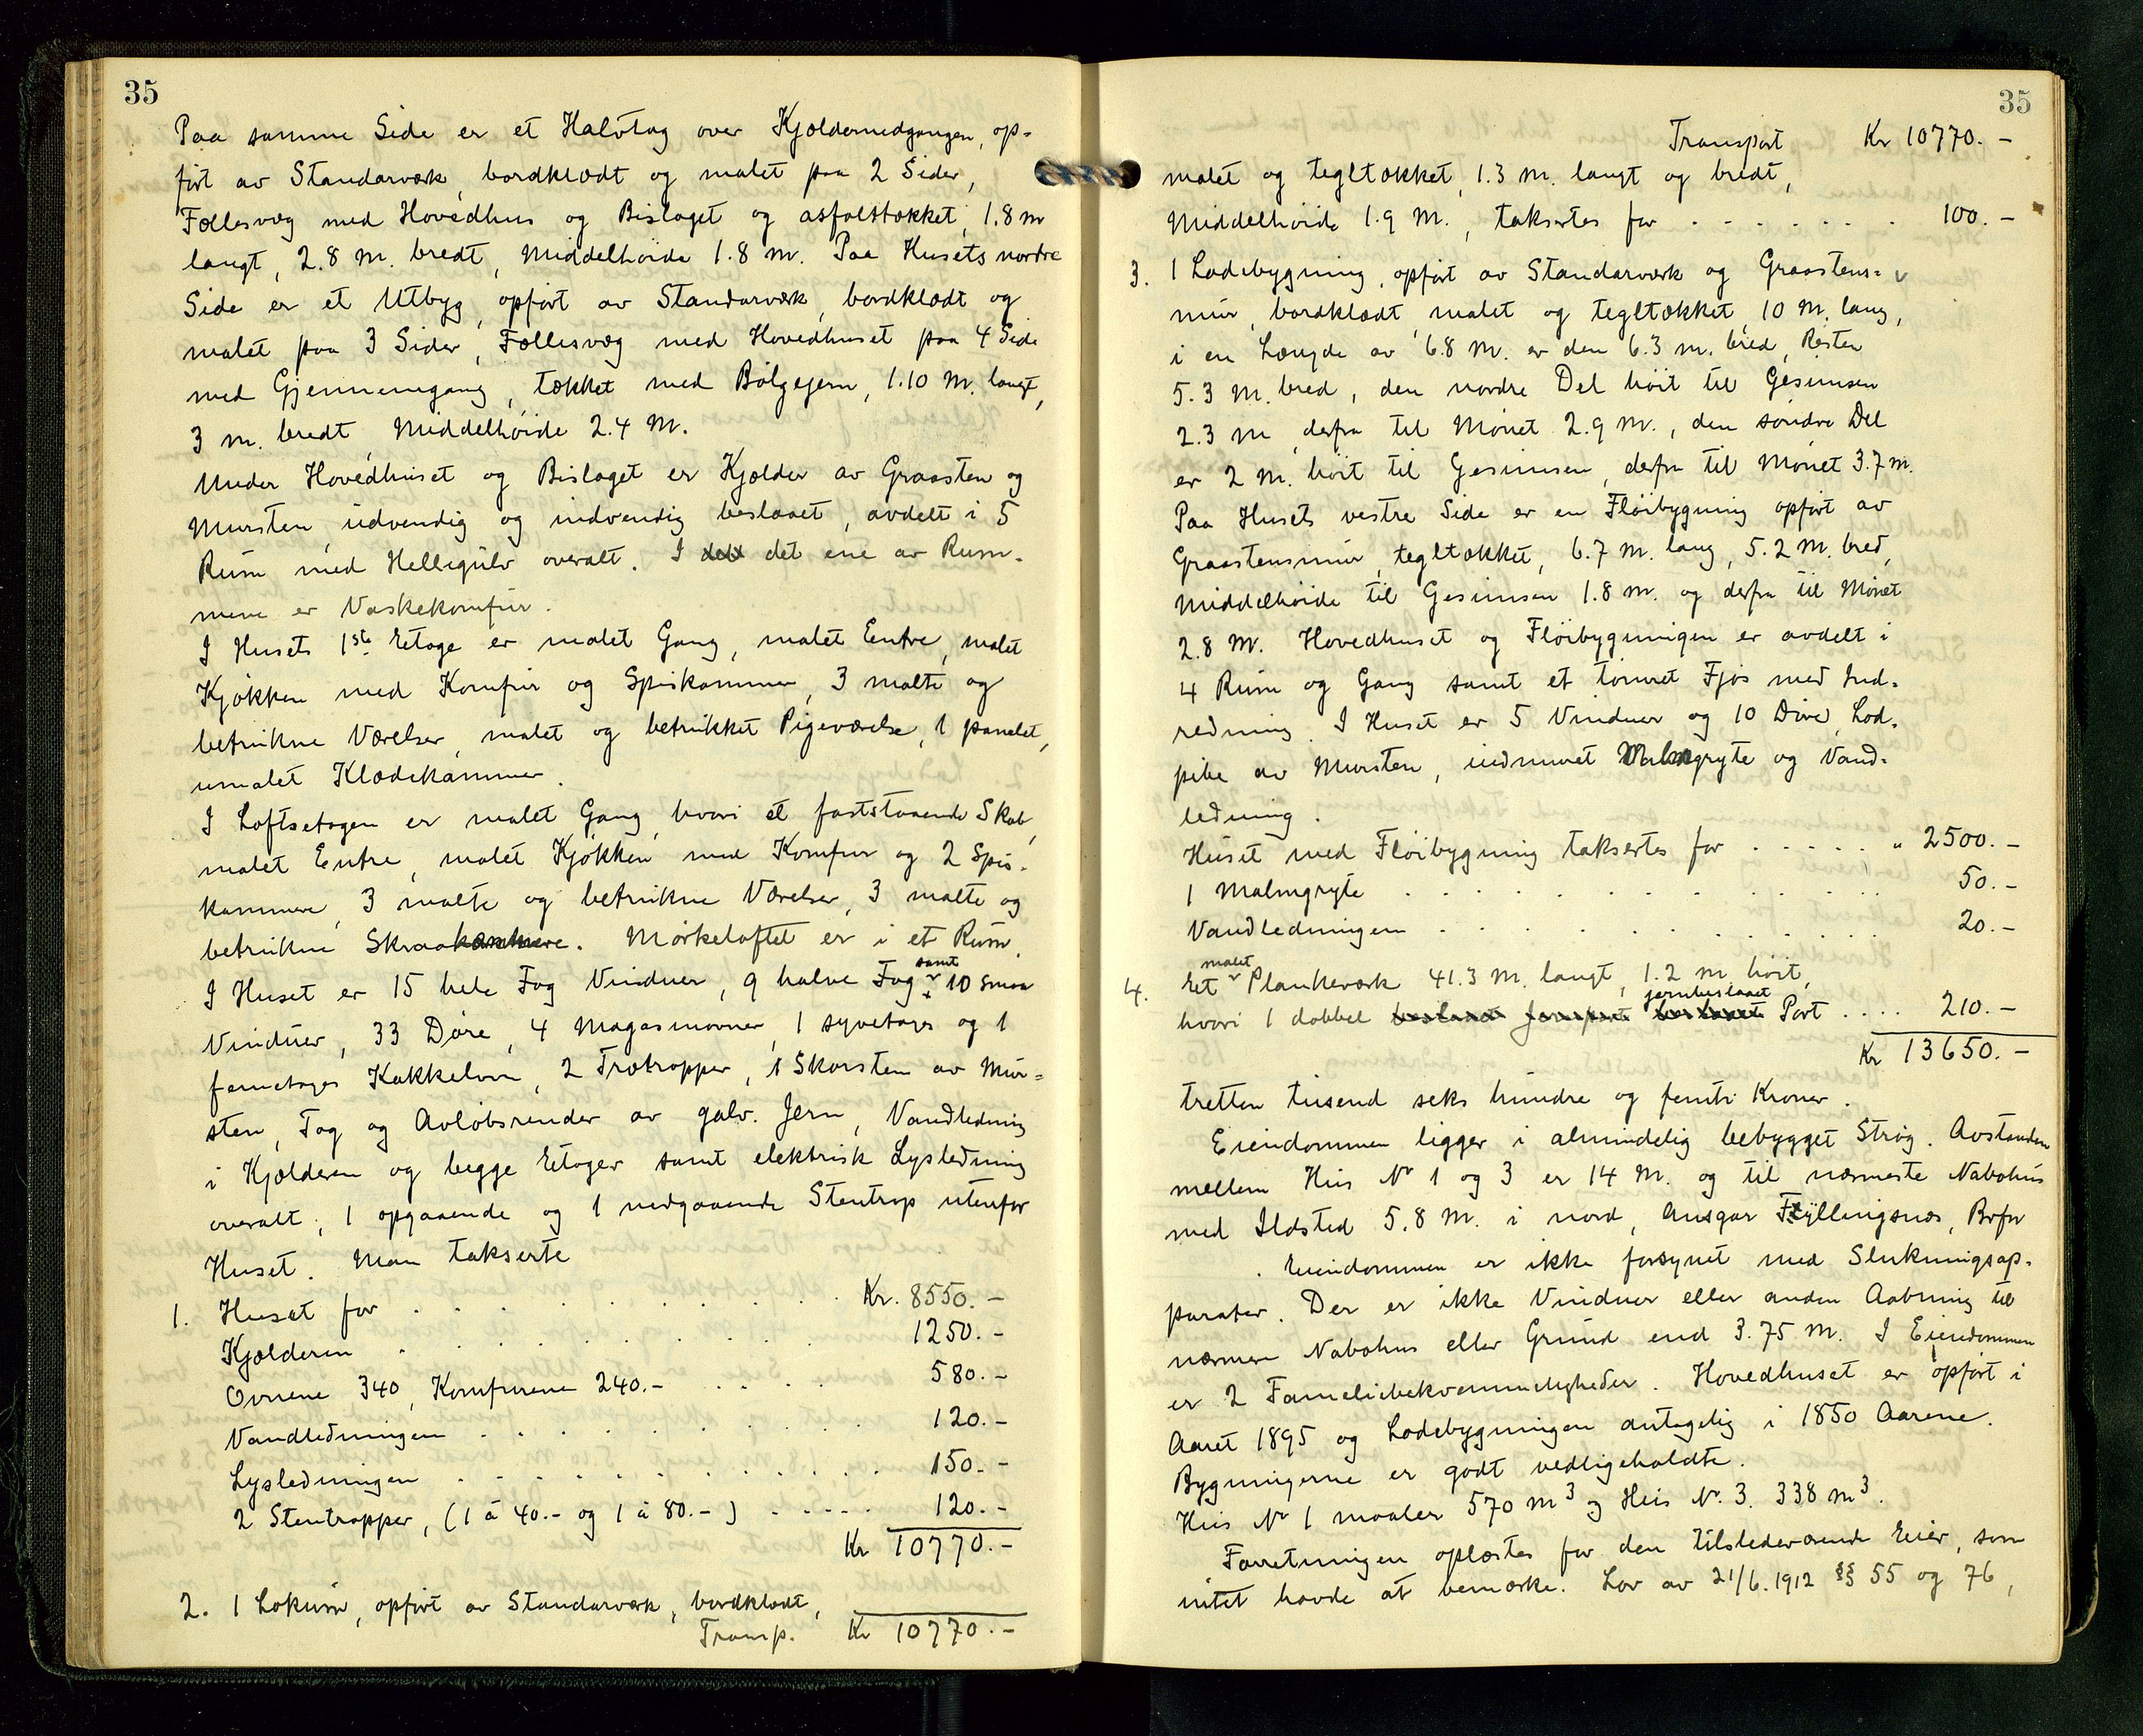 35
Paa samme Side er et Halvtag over Kjældernedgangen, op-
ført av Standarværk, bordklædt og malet paa 2 Sider,
Fællesvæg med Hovedhus og Bislaget og asfalttækket, 1.8 m
langt, 2.8 m. bredt, Middelhøide 1.8 m. Paa Husets nordre
Side er et Utbyg, opført av Standarværk, bordklædt og
malet paa 3 Sider, Fællesvæg med Hovedhuset paa 4 Side
med Gjennemgang, tækket med Bølgejern, 1.10 m. langt,
3 m. bredt, Middelhøide 2.4 m.
Under Hovedhuset og Bislaget er Kjælder av Graasten og
Mursten, udvendig og indvendig beslaaet, avdelt i 5
Rum med Hellegulv overalt. I det det ene av Rum-
mene er Vaskekomfur.
I Husets 1ste Etage er malet Gang, malet Entre, malet
Kjøkken med Komfur og Spiskammer, 3 malte og
betrukne Værelser, malet og betrukket Pigeværelse, 1 panelet,
umalet Klædekammer.
I Loftsetagen er malet Gang, hvori et faststaaende Skab,
malet Entre, malet Kjøkken med Komfur og 2 Spis-
kammere, 3 malte og betrukne Værelser, 3 malte og
betrukne Skraakammere. Mørkeloftet er i et Rum.
I Huset er 15 hele Fag Vinduer, 9 halve Fag samt 10 smaa
Vinduer, 33 Døre, 4 Magasinovner, 1 syvetages og 1
femetages Kakkelovn, 2 Trætrapper, 1 Skorsten av Mur-
sten, Tag og Avløbsrender av galv. Jern, Vandledning
i Kjælderen og begge Etager samt elektrisk Lysledning
overalt, 1 opgaaende og 1 nedgaaende Stentrap utenfor
Huset. Man takserte
1. Huset for . . . . . . Kr. 8550.-
Kjælderen . . . . . . 1250.-
Ovnene 340, Komfurene 240.- . . . . 580.-
Vandledningen . . . . . . 120.-
Lysledningen . . . . . . 150.-
2 Stentrapper, (1 à 40.- og 1 à 80.-) . . . . . 120.-
Kr 10770.-
2. 1 Lokum, opført av Standarværk, bordklædt,
Transp. Kr 10770.-
35
Transport Kr 10770.-
malet og tegltækket, 1.3 m. langt og bredt,
Middelhøide 1.9 m., taksertes for . . . . . . 100.-
3. 1 Ladebygning, opført av Standarværk og Graastens-
mur, bordklædt, malet og tegltækket, 10 m. lang,
i en Længde av 6.8 m. er den 6.3 m. bred, Resten
5.3 m. bred, den nordre Del høit til Gesimsen
2.3 m, derfra til Mønet 2.9 m., den søndre Del
er 2 m. høit til Gesimsen, derfra til Mønet 3.7 m.
Paa Husets vestre Side er en Fløibygning opført av
Graastensmur, tegltækket, 6.7 m. lang, 5.2 m. bred,
Middelhøide til Gesimsen 1.8 m. og derfra til Mønet
2.8 m. Hovedhuset og Fløibygningen er avdelt i
4 Rum og Gang samt et tømret Fjøs med Ind-
redning. I Huset er 5 Vinduer og 10 Døre, Lod-
pibe av Mursten, indmuret Malmgryte og Vand-
ledning.
Huset med Fløibygning taksertes for . . . . . " 2500.-
1 Malmgryte . . . . . . 50.-
Vandledningen . . . . . . 20.-
4. Et malet Plankeværk 41.3 m. langt, 1.2 m. høit,
hvori 1 dobbel jernbeslaaet Port . . . . 210.-
Kr 13650.-
tretten tusend seks hundre og femti Kroner.
Eiendommen ligger i almindelig bebygget Strøg. Avstanden
mellem Hus No 1 og 3 er 14 m. og til nærmeste Nabohus
med Ildsted 5.8 m. i nord, Ansgar Fyllingsnæs, Brfn
. Eiendommen er ikke forsynet med Slukningsap-
parater. Der er ikke Vinduer eller anden Aabning til
nærmere Nabohus eller Grund end 3.75 m. I Eiendommen
er 2 Familiebekvemmeligheder. Hovedhuset er opført i
Aaret 1895 og Ladebygningen antagelig i 1850 Aarene.
Bygningerne er godt vedligeholdte.
Hus No 1 maaler 570 m³ og Hus No. 3. 338 m³.
Forretningen oplæstes for den tilstedeværende Eier, som
intet havde at bemærke. Lov av 21/6.1912 §§ 55 og 76,